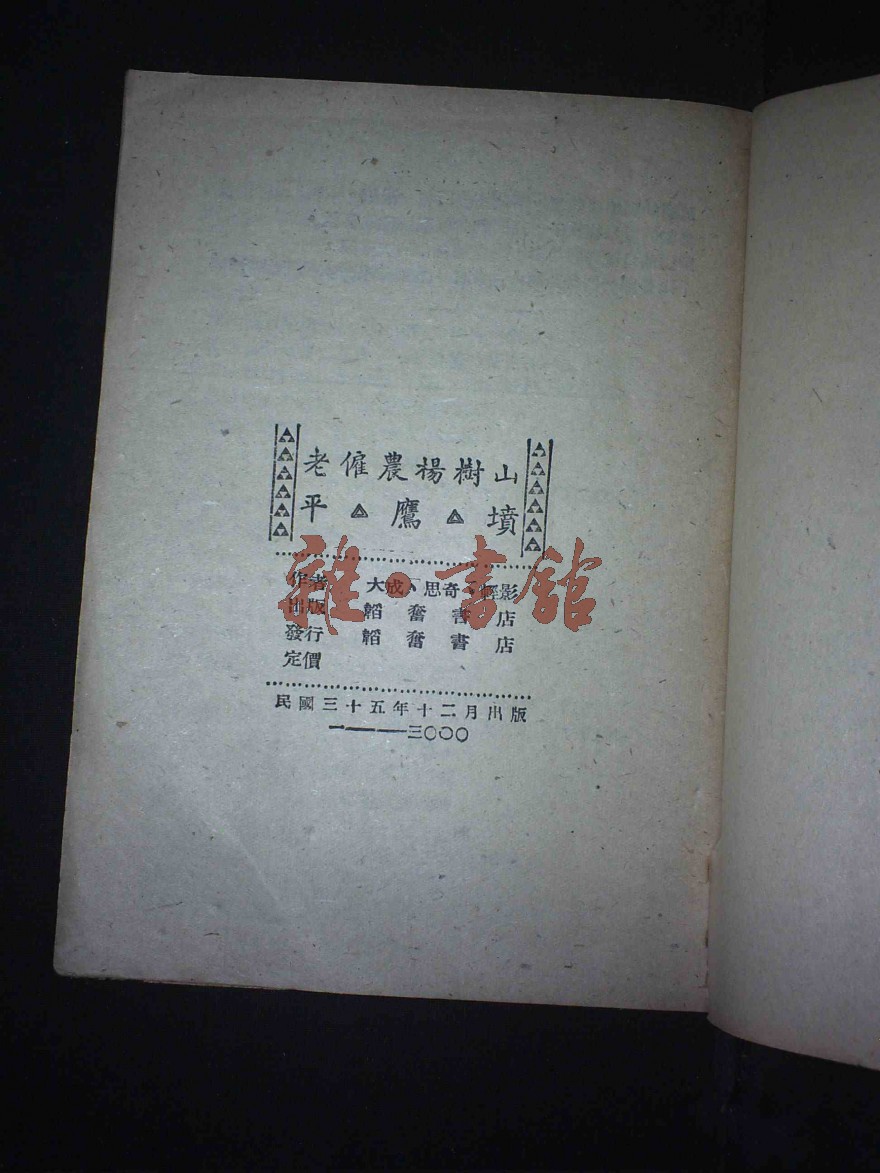 老僱農楊樹山
平鷹墳
雜·書館
作者 大成、思奇、輕影
出版 韜奮書店
發行 韜奮書店
定價
民國三十五年十二月出版
一——三〇〇〇